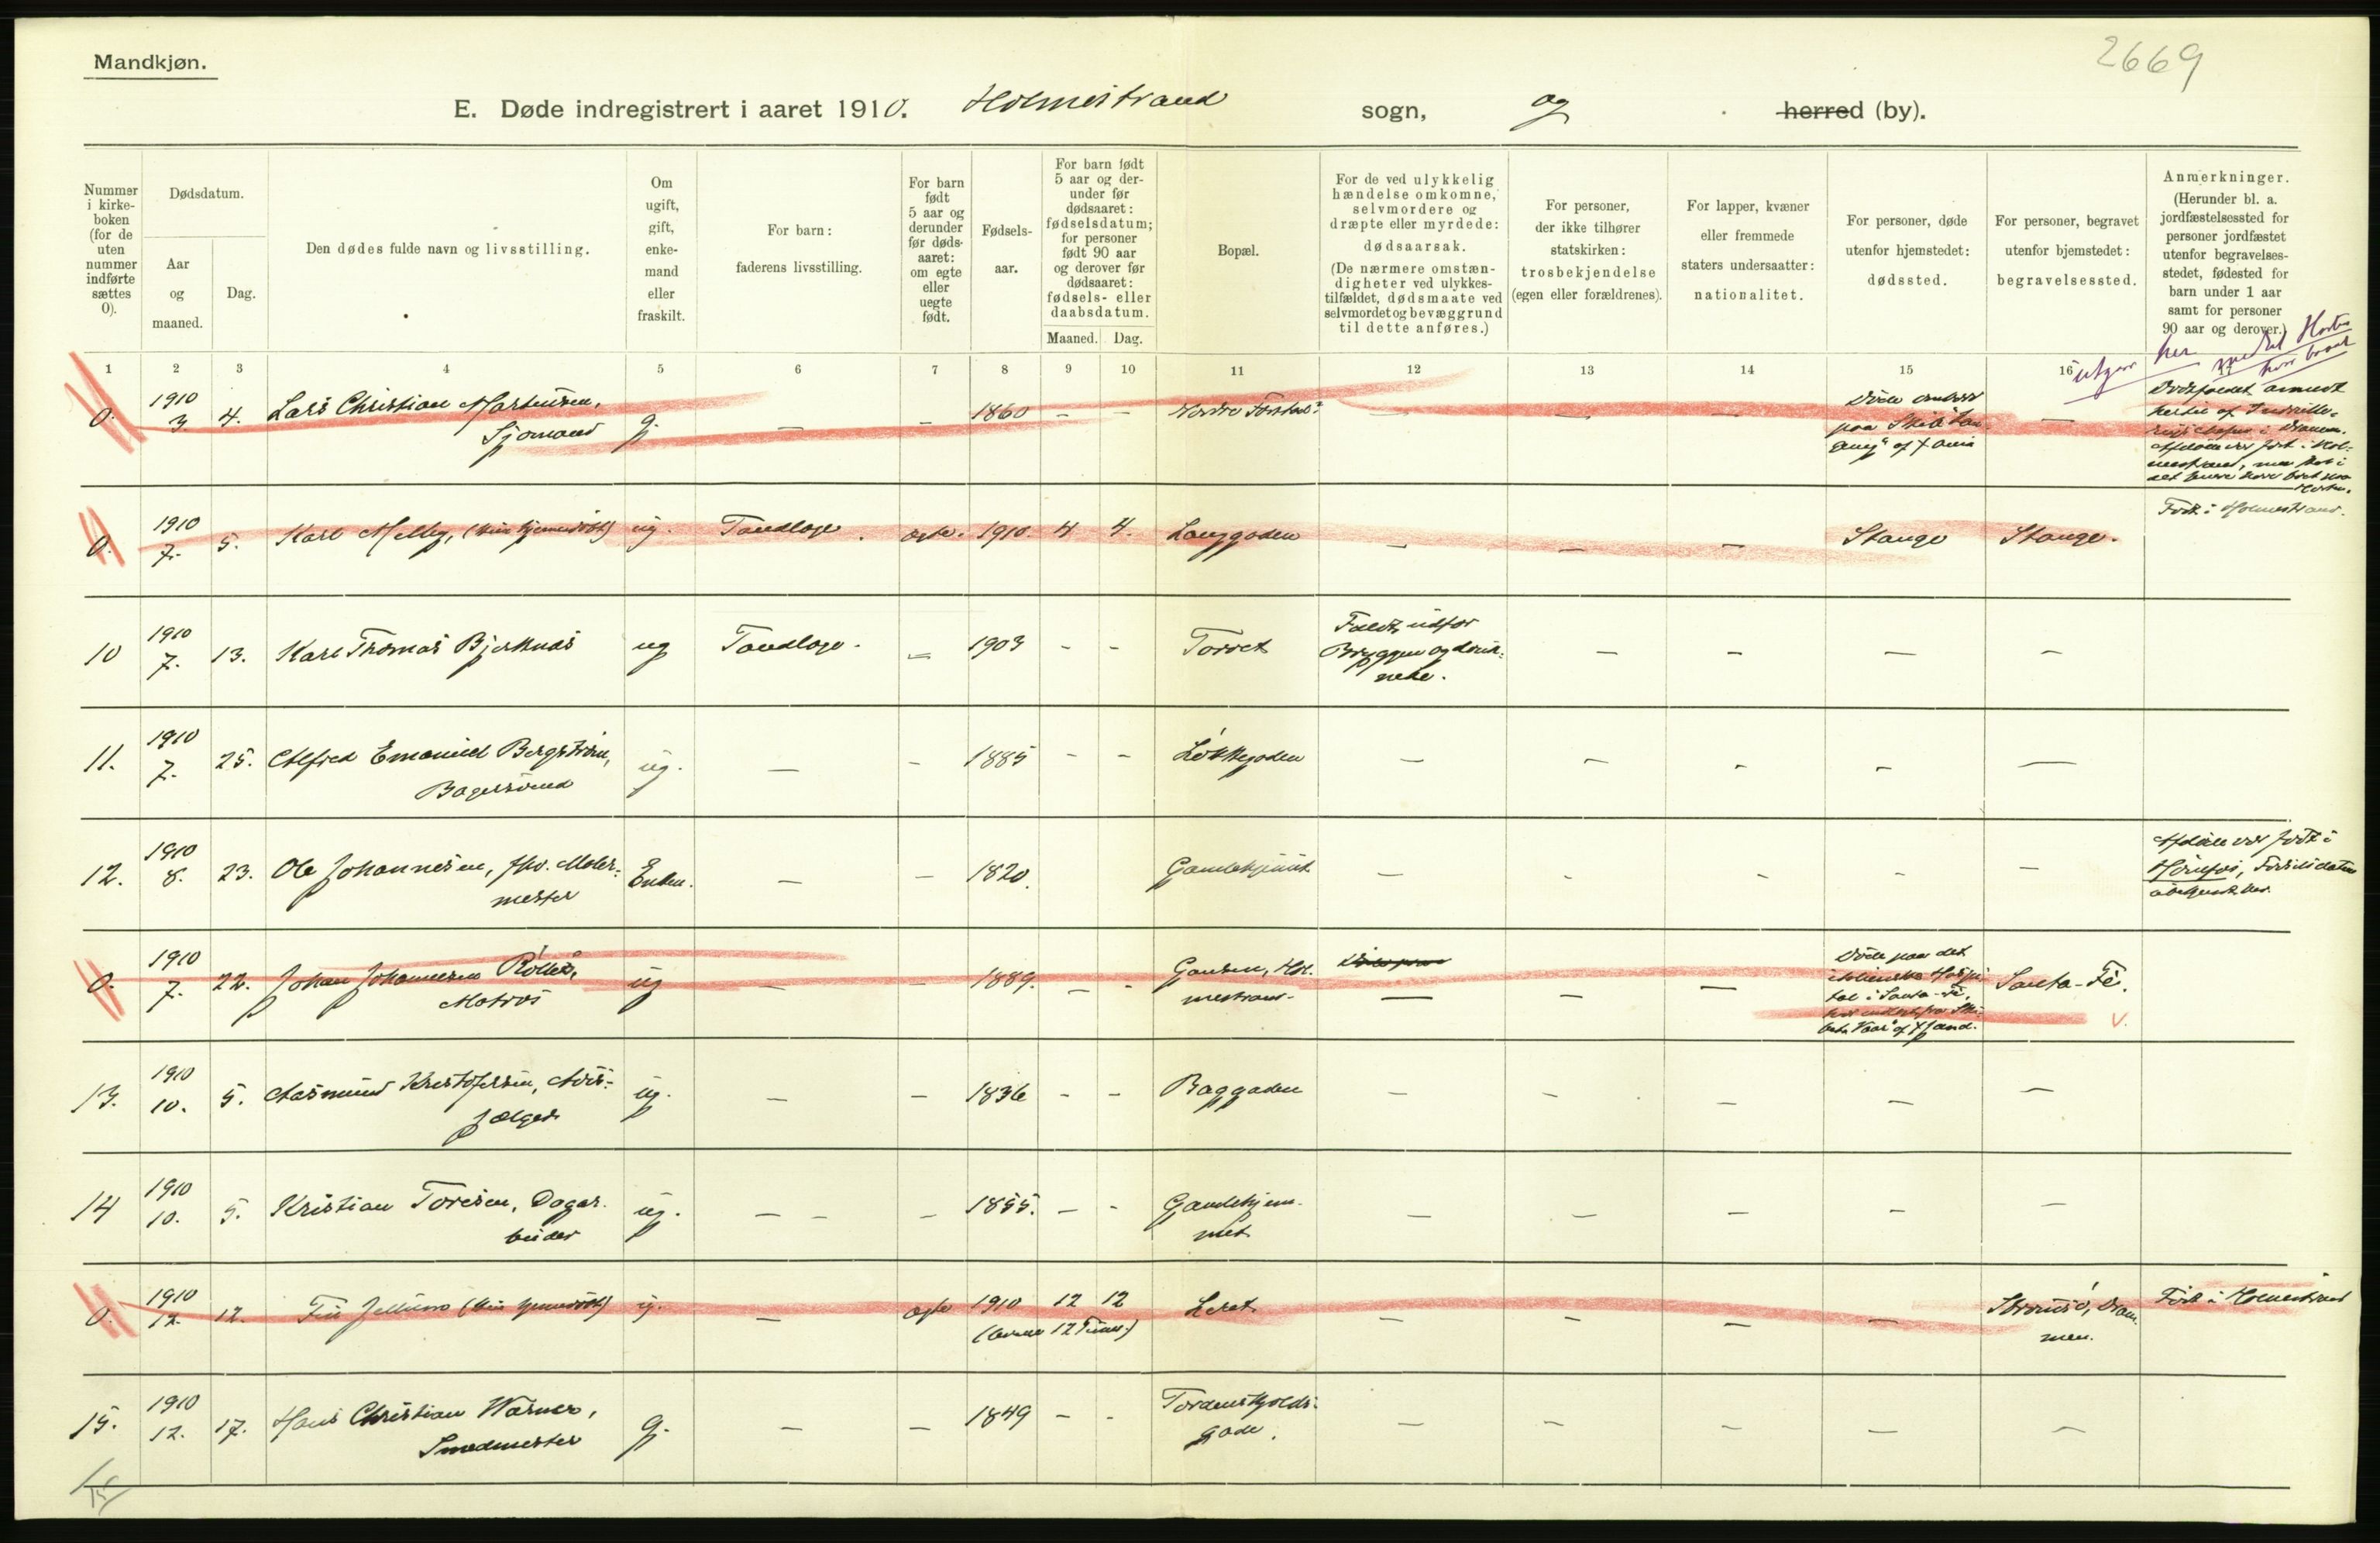 Mandkjøn.
2669
E. Døde indregistrert i aaret 1910. Holmestrand sogn, og herred (by).
Nummer i kirkeboken (for de uten nummer indførte sættes 0).
Dødsdatum.
Aar og maaned.
Dag.
Den dødes fulde navn og livsstilling.
Om ugift, gift, enkemand eller fraskilt.
For barn: faderens livsstilling.
For barn født 5 aar og derunder før dødsaaret: om egte eller uegte født.
Fødselsaar.
For barn født 5 aar og derunder før dødsaaret: fødselsdatum; for personer født 90 aar og derover før dødsaaret: fødsels- eller daabsdatum.
Maaned. Dag.
Bopæl.
For de ved ulykkelig hændelse omkomne, selvmordere og dræpte eller myrdede: dødsaarsak. (De nærmere omstændigheter ved ulykkestilfældet, dødsmaate ved selvmordet og bevæggrund til dette anføres.)
For personer, der ikke tilhører statskirken: trosbekjendelse (egen eller forældrenes).
For lapper, kvæner eller fremmede staters undersaatter: nationalitet.
For personer, døde utenfor hjemstedet: dødssted.
For personer, begravet utenfor hjemstedet: begravelsessted.
Anmerkninger. (Herunder bl. a. jordfæstelsessted for personer jordfæstet utenfor begravelsesstedet, fødested for barn under 1 aar samt for personer 90 aar og derover.)
utgaar her
1 2 3 4 5 6 7 8 9 10 11 12 13 14 15 16 17
0. 1910 3. 4. Lars Christian Martinsen, Sjømand g. — — 1860 — — Nordre — — — Døde ombord paa Skib — Dødsfaldet anmeldt
0. 1910 7. 5. Karl Melby, (hjemmedøbt) ug. Tandlæge. ægte. 1910. 4 4. Langgaden — — — Stange Stange. Født i Holmestrand.
10 1910 7. 13. Karl Thomas Bjerknæs ug Tandlæge. — 1903 — — Torvet Faldt udfor Bryggen og druknede. — — — —
11. 1910 7. 25. Alfred Emanuel Bergström, Bagersvend ug. — — 1885 — — Løkkegaden — — — — —
12. 1910 8. 23. Ole Johannesen, fhv. Malermester Enkem. — — 1820. Gamlehjemmet — — — — — Afdøde var født i
0. 1910 7. 22. Johan Johannesen Matros ug — — 1889. — — Gausen, Holmestrand — — — Døde paa det italienske Hospital i Santa-Fè, Santa-Fè.
13. 1910 10. 5. Aasmund Kristofersen, Avissælger ug. — — 1836 — — Baggaden — — — — —
14 1910 10. 5. Kristian Toresen, Dagarbeider ug. — — — 1855. — — Gamlehjemmet — — — — —
0. 1910 12. 12. (hjemmedøbt) ug. — ægte 1910 12 12 Leret — — — — Strømsø, Drammen. Født i Holmestrand
15. 1910 12. 17. Hans Christian Warner, Smedmester g. — — 1849 — — Tordenskjoldsgade. — — — — —
15